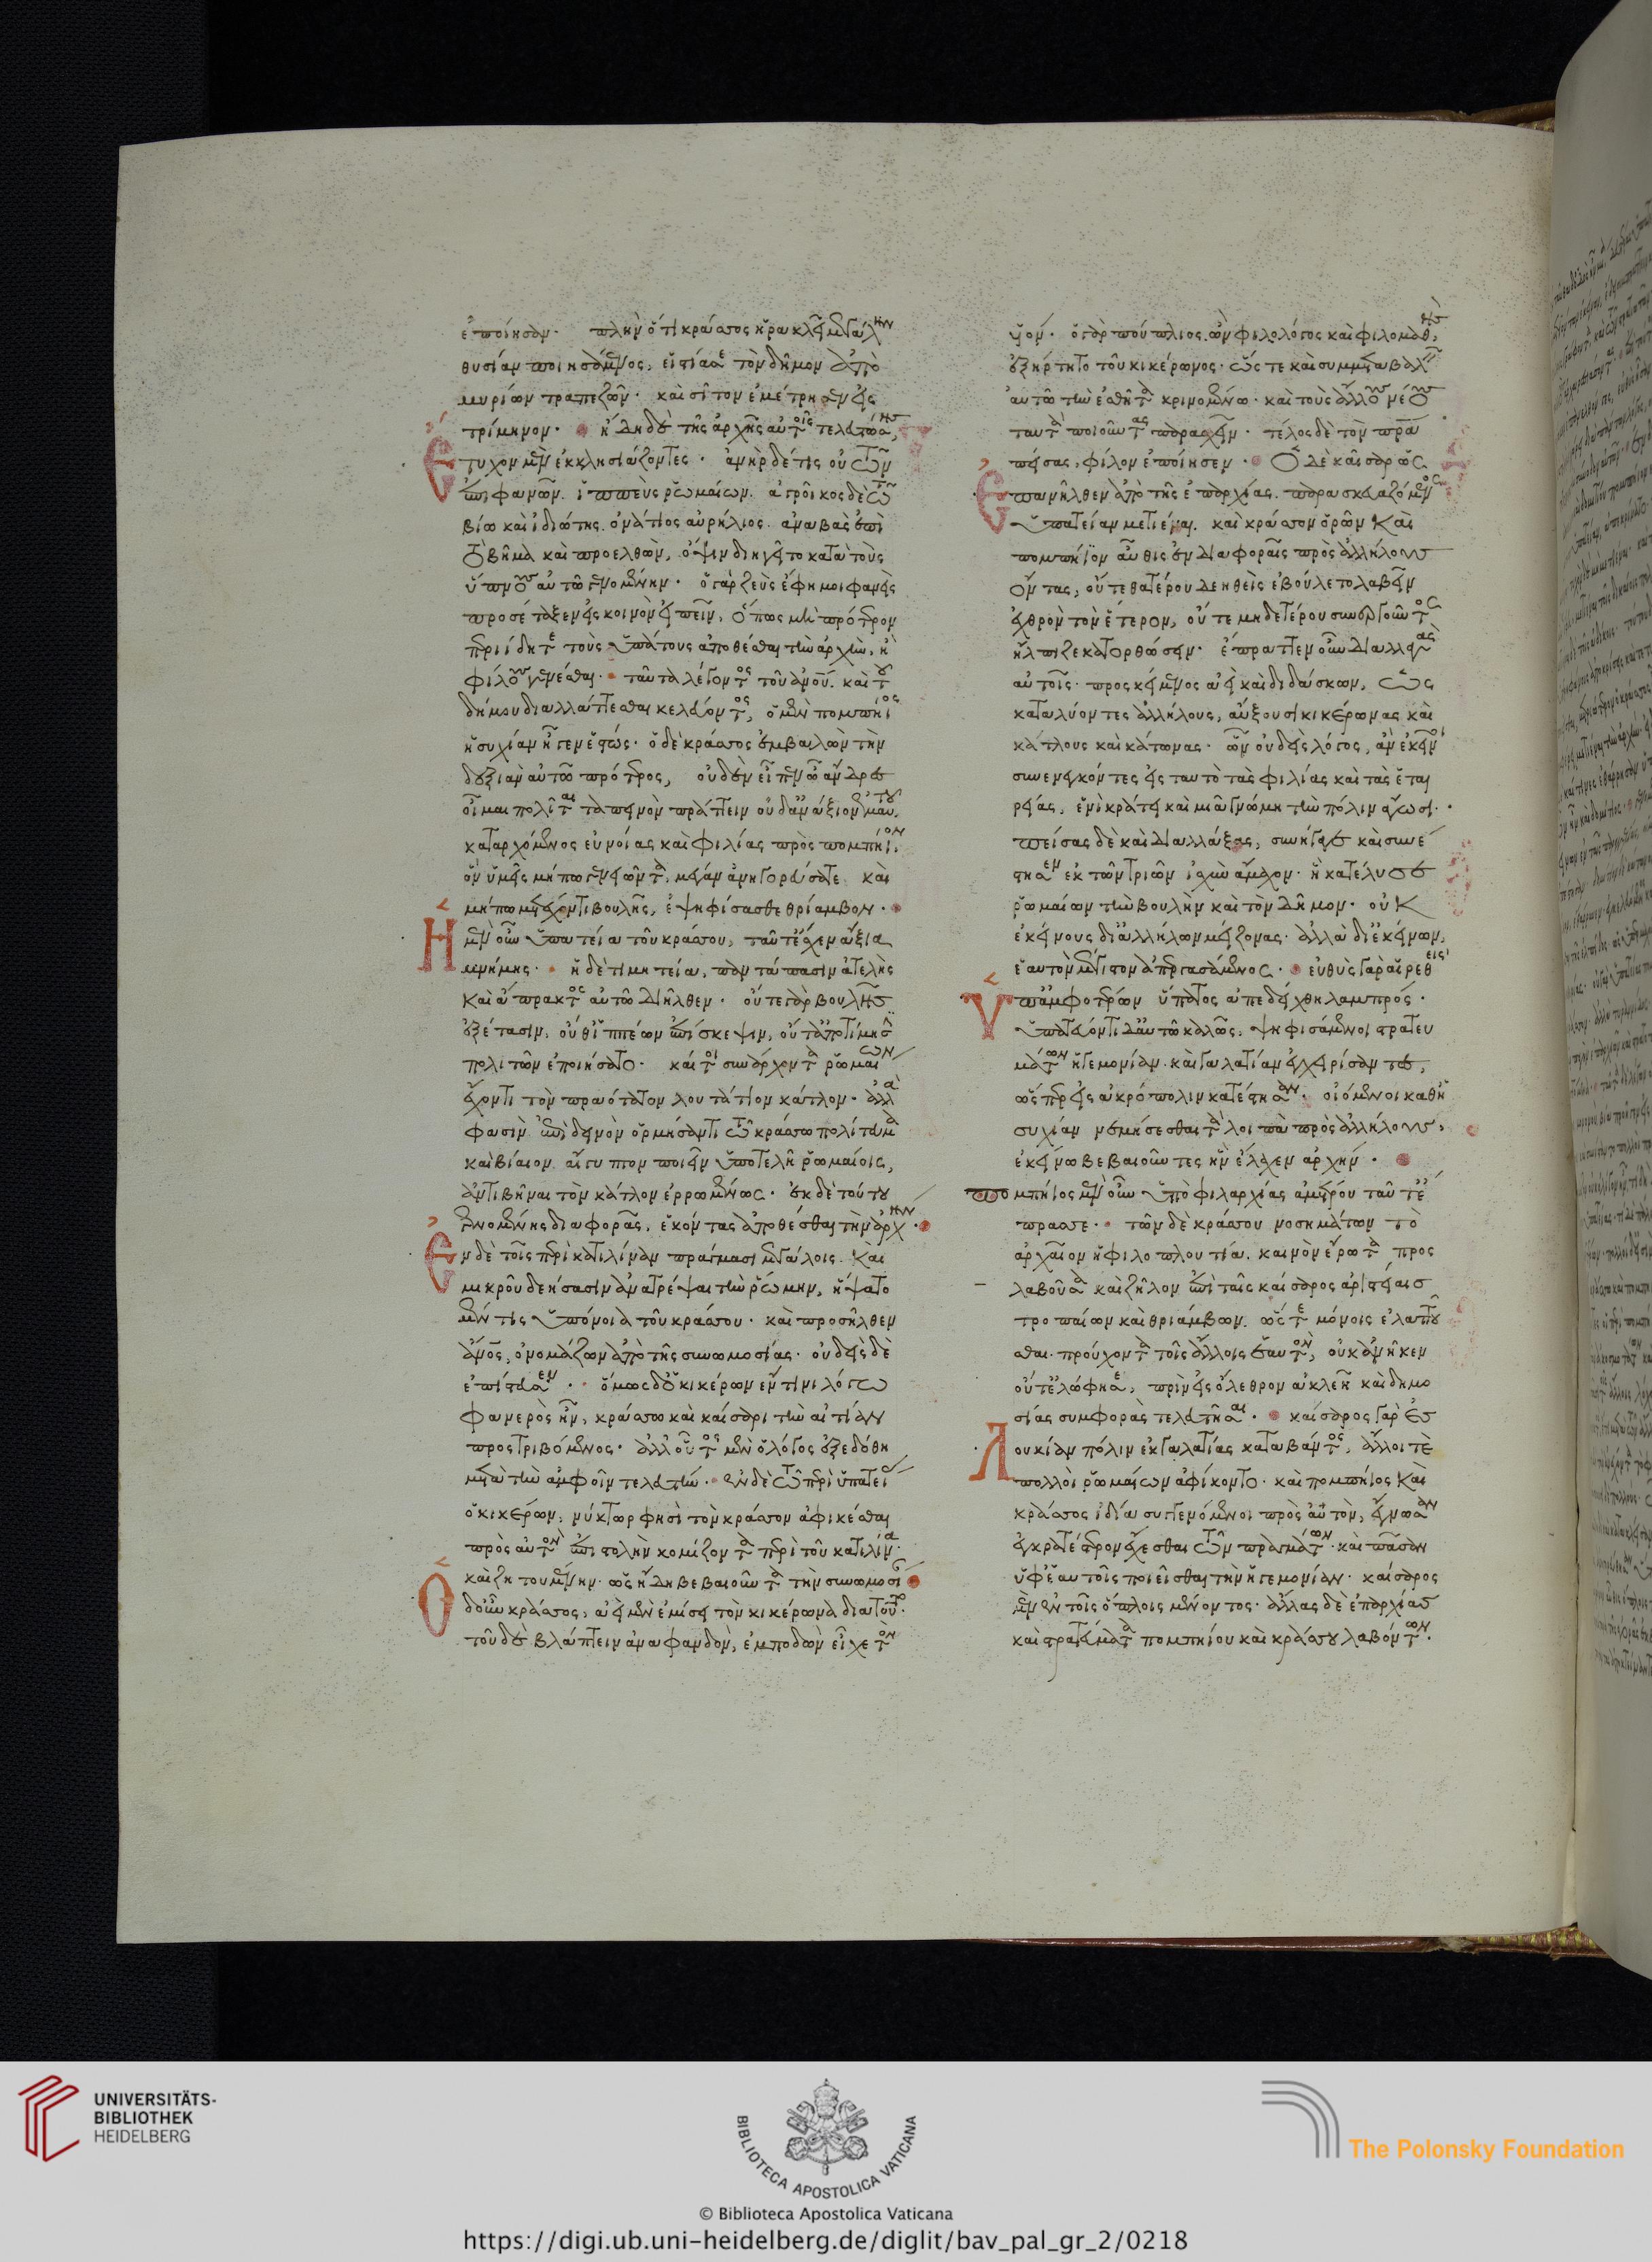 ἐποίησαν· πλὴν ὅτι κράσσος ἡρακλεῖ μεγάλην
θυσίαν ποιησάμενος, εἱστίασε τὸν δῆμον ἀπὸ
μυρίων τραπεζῶν· καὶ σῖτον ἐμέτρησεν εἰς
τρίμηνον· ἤδη δὲ τῆς ἀρχῆς αὐτοῖς τελευτώσης,
Ἔτυχον μὲν ἐκκλησιάζοντες· ἀνὴρ δέ τις οὐ τῶν
ἐπιφανῶν. ἱππεὺς ῥωμαίων. ἄγροικος δὲ τῶ
βίω καὶ ἰδιώτης. ὀνάτιος αὐρήλιος. ἀναβὰς ἐπὶ
τὸ βῆμα καὶ προελθὼν, ὄψιν διηγεῖτο κατὰ τοὺς
ὕπνους αὐτῶ γενομένην· ὁ γὰρ ζεὺς ἔφη μοι φανεὶς
προσέταξεν εἰς κοινὸν εἰπεῖν, ὅπως μὴ πρότερον
περιίδητε τοὺς ὑπάτους ἀποθέσθαι τὴν ἀρχὴν, ἢ
φίλους γενέσθαι· ταῦτα λέγοντος τοῦ ἀνου. καὶ τοῦ
δήμου διαλλάττεσθαι κελεύοντος, ὁ μὲν πομπήιος
ἡσυχίαν ἦγεν ἑστώς· ὁ δὲ κράσσος ἐμβαλὼν τὴν
δεξιὰν αὐτῶ πρότερος, οὐδὲν εἶπεν ὦ ἄνδρες
οἶμαι πολῖται ταπεινὸν πράττειν οὐδ' ἀνάξιον ἐμαυτοῦ.
καταρχόμενος εὐνοίας καὶ φιλίας πρὸς πομπήιον.
ὃν ὑμεῖς μήπω γενειῶντα, μέγαν ἀνηγορεύσατε καὶ
μήπω μετέχοντι βουλῆς, ἐψηφίσασθε θρίαμβον·
Ἡ μὲν οὖν ὑπατεία τοῦ κράσσου, ταῦτ' ἔσχεν ἄξια
μνήμης· ἡ δὲ τιμητεία, παντάπασιν ἀτελὴς
καὶ ἄπρακτος αὐτῶ διῆλθεν· οὔτε γὰρ βουλῆς
ἐξέτασιν, οὔθ' ἱππέων ἐπίσκεψιν, οὔτ' ἀποτίμησιν
πολιτῶν ἐποιήσατο· καί τοι συνάρχοντα ῥωμαίων
ἔχοντι τὸν πραότατον λουτάτιον κάτλον· ἀλλά
φασὶν ἐπὶ δεινὸν ὁρμήσαντι τῶ κράσσω πολίτευμα
καὶ βίαιον αἴγυπτον ποιεῖν ὑποτελῆ ῥωμαίοις,
ἀντιβῆναι τὸν κάτλον ἐρρωμένως· ἐκ δὲ τούτου
γενομένης διαφορᾶς, ἑκόντας ἀποθέσθαι τὴν ἀρχήν·
Ἐν δὲ τοῖς περὶ κατιλίναν πράγμασι μεγάλοις. καὶ
μικροῦ δεήσασιν ἀνατρέψαι τὴν ῥώμην, ἥψατο
μέν τις ὑπόνοια τοῦ κράσσου· καὶ προσῆλθεν
ἄνος, ὀνομάζων ἀπὸ τῆς συνωμοσίας· οὐδεὶς δὲ
ἐπίστευσεν· ὅμως δ' ὁ κικέρων ἔν τινι λόγω
φανερὸς ἦν, κράσσω καὶ καίσαρι τὴν αἰτίαν
προστριβόμενος· ἀλλ' οὗτος μὲν ὁ λόγος ἐξεδόθη
μετὰ τὴν ἀμφοῖν τελευτήν· ἐν δὲ τῶ περὶ ὑπατείας
ὁ κικέρων, νύκτωρ φησὶ τὸν κράσσον ἀφικέσθαι
πρὸς αὐτὸν ἐπιστολὴν κομίζοντα περὶ τοῦ κατιλίνα.
καὶ ζητουμένην· ὡς ἤδη βεβαιοῦντα τὴν συνωμοσίαν
Ὁ δ' οὖν κράσσος, ἀεὶ μὲν ἐμίσει τὸν κικέρωνα διὰ τοῦτο.
τοῦ δὲ βλάπτειν ἀναφανδὸν, ἐμποδὼν εἶχε τὸν
υἱόν· ὁ γὰρ πούπλιος ὢν φιλολόγος καὶ φιλομαθὴς,
ἐξήρτητο τοῦ κικέρωνος· ὥς τε καὶ συμμεταβαλεῖν
αὐτῶ τὴν ἐσθῆτα κρινομένω· καὶ τοὺς ἄλλους νέους
ταυτὰ ποιοῦντας παρασχεῖν· τέλος δὲ τὸν πρα
πείσας, φίλον ἐποίησεν· Ὁ δὲ καῖσαρ ὡς
Ἐπανῆλθεν ἀπὸ τῆς ἐπαρχίας. παρασκευαζόμενος
ὑπατείαν μετιέναι. καὶ κράσσον ὁρῶν καὶ
πομπήϊον αὖθις ἐν διαφοραῖς πρὸς ἀλλήλους
ὄντας, οὔτε θατέρου δεηθεὶς ἐβούλετο λαβεῖν
ἐχθρὸν τὸν ἕτερον, οὔτε μηδετέρου συνεργοῦντος
ἤλπιζε κατορθώσειν· ἔπραττεν οὖν διαλλαγὰς
αὐτοῖς· προσκείμενος ἀεὶ καὶ διδάσκων, ὡς
καταλύοντες ἀλλήλους, αὔξουσι κικέρωνας καὶ
κάτλους καὶ κάτωνας· ὧν οὐδεὶς λόγος, ἂν ἐκεῖνοι
συνενεγκόντες εἰς ταυτὸ τὰς φιλίας καὶ τὰς ἑται
ρείας, ἑνὶ κράτει καὶ μιᾶ γνώμη τὴν πόλιν ἄγωσι·
πείσας δὲ καὶ διαλλάξας, συνήγαγε καὶ συνέ
στησεν ἐκ τῶν τριῶν ἰσχὺν ἄμαχον· ἣ κατέλυσε
ῥωμαίων τὴν βουλὴν καὶ τὸν δῆμον· οὐκ
ἐκείνους δι' ἀλλήλων μείζονας· ἀλλὰ δι' ἐκείνων,
ἑαυτὸν μέγιστον ἀπεργασάμενος· εὐθὺς γὰρ αἱρεθεὶς
Ὑπ' ἀμφοτέρων ὕπατος ἀπεδείχθη λαμπρός·
ὑπατεύοντι δ' αὐτῶ καλῶς, ψηφισάμενοι στρατευ
μάτων ἡγεμονίαν. καὶ γαλατίαν ἐγχειρίσαντες,
ὥσπερ εἰς ἀκρόπολιν κατέστησαν· οἰόμενοι καθ' ἡ
συχίαν νεμήσεσθαι τἄλλοιπὰ πρὸς ἀλλήλους,
ἐκείνω βεβαιοῦντες ἣν ἔλαχεν ἀρχήν·
πομπήιος μὲν οὖν ὑπὸ φιλαρχίας ἀμέτρου ταῦτ' ἔ
πρασσε· τῶν δὲ κράσσου νοσημάτων τὸ
ἀρχαῖον ἡ φιλοπλουτία. καινὸν ἔρωτα προς
λαβοῦσα καὶ ζῆλον ἐπὶ ταῖς καίσαρος ἀριστείαις
τροπαίων καὶ θριάμβων. ὥς τε μόνοις ἐλαττοῦ
σθαι. προύχοντα τοῖς ἄλλοις ἑαυτὸν, οὐκ ἀνῆκεν
οὐτ' ἐλώφησε, πρὶν εἰς ὄλεθρον ἀκλεῆ καὶ δημο
σίας συμφορὰς τελευτῆσαι· καίσαρος γὰρ εἰς
Λουκίαν πόλιν ἐκ γαλατίας καταβάντος, ἄλλοι τὲ
πολλοὶ ῥωμαίων ἀφίκοντο· καὶ πομπήιος καὶ
κράσσος ἰδία συγγενόμενοι πρὸς αὐτὸν, ἔγνωσαν
ἐγκρατέστερον ἔχεσθαι τῶν πραγμάτων· καὶ πᾶσαν
ὑφ' ἑαυτοῖς ποιεῖσθαι τὴν ἡγεμονίαν· καίσαρος
μὲν ἐν τοῖς ὅπλοις μένοντος· ἄλλας δὲ ἐπαρχίας
καὶ στρατεύματα πομπηίου καὶ κράσσου λαβόντων·
UNIVERSITÄTS-
BIBLIOTHEK
HEIDELBERG
BIBLIOTECA APOSTOLICA VATICANA
The Polonsky Foundation
© Biblioteca Apostolica Vaticana
https://digi.ub.uni-heidelberg.de/diglit/bav_pal_gr_2/0218